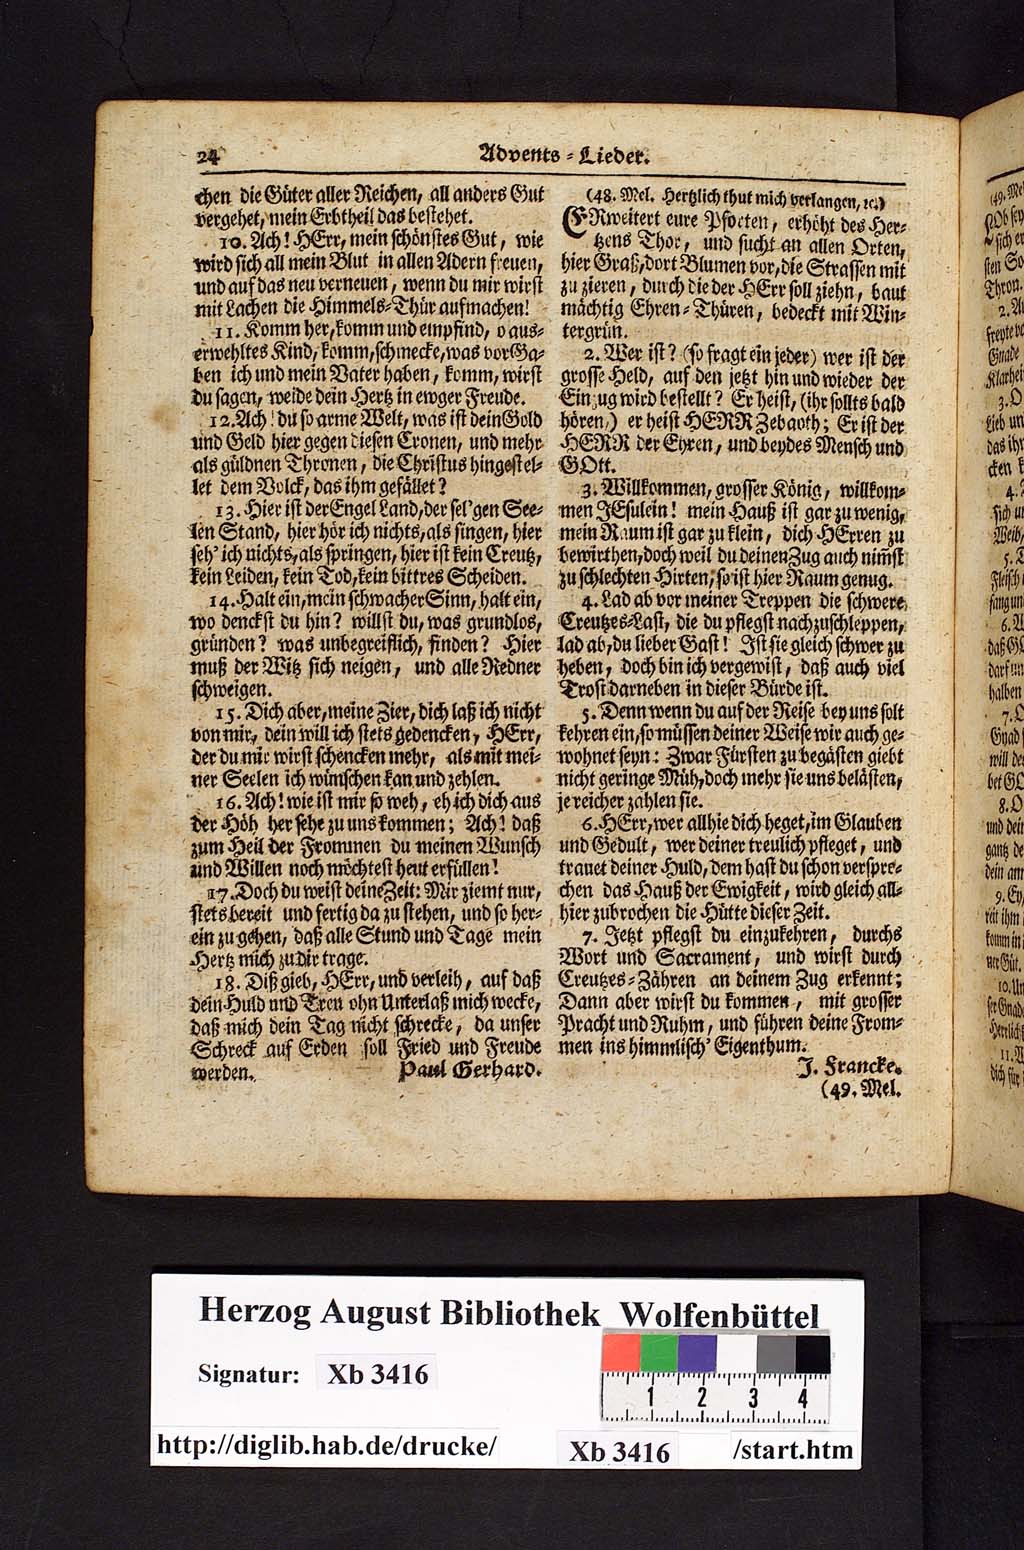 24
Advents-Lieder.
chen die Güter aller Reichen, all anders Gut
vergehet, mein Erbtheil das bestehet.
10. Ach! HErr, mein schönstes Gut, wie
wird sich all mein Blut in allen Adern freuen,
und auf das neu verneuen, wenn du mir wirst
mit Lachen die Himmels-Thür aufmachen!
11. Komm her, komm und empfind, o aus-
erwehltes Kind, komm, schmecke, was vor Ga-
ben ich und mein Vater haben, komm, wirst
du sagen, weide dein Hertz in ewger Freude.
12. Ach! du so arme Welt, was ist dein Gold
und Geld hier gegen diesen Cronen, und mehr
als güldnen Thronen, die Christus hingestel-
let dem Volck, das ihm gefället?
13. Hier ist der Engel Land, der sel'gen See-
len Stand, hier hör ich nichts, als singen, hier
seh' ich nichts, als springen, hier ist kein Creutz,
kein Leiden, kein Tod, kein bittres Scheiden.
14. Halt ein, mein schwacher Sinn, halt ein,
wo denckst du hin? willst du, was grundlos,
gründen? was unbegreiflich, finden? Hier
muß der Witz sich neigen, und alle Redner
schweigen.
15. Dich aber, meine Zier, dich laß ich nicht
von mir, dein will ich stets gedencken, HErr,
der du mir wirst schencken mehr, als mit mei-
ner Seelen ich wünschen kan und zehlen.
16. Ach! wie ist mir so weh, eh ich dich aus
der Höh her sehe zu uns kommen; Ach! daß
zum Heil der Frommen du meinen Wunsch
und Willen noch möchtest heut erfüllen!
17. Doch du weist deine Zeit: Mir ziemt nur,
stets bereit und fertig da zu stehen, und so her-
ein zu gehen, daß alle Stund und Tage mein
Hertz mich zu dir trage.
18. Diß gieb, HErr, und verleih, auf daß
dein Huld und Treu ohn Unterlaß mich wecke,
daß mich dein Tag nicht schrecke, da unser
Schreck auf Erden soll Fried und Freude
werden. Paul Gerhard.
(48. Mel. Hertzlich thut mich verlangen, ꝛc.)
ERweitert eure Pforten, erhöht des Her-
tzens Thor, und sucht an allen Orten,
hier Graß, dort Blumen vor, die Strassen mit
zu zieren, durch die der HErr soll ziehn, baut
mächtig Ehren-Thüren, bedeckt mit Win-
tergrün.
2. Wer ist? (so fragt ein jeder) wer ist der
grosse Held, auf den jetzt hin und wieder der
Einzug wird bestellt? Er heist, (ihr sollts bald
hören,) er heist HERR Zebaoth; Er ist der
HERR der Ehren, und beydes Mensch und
GOtt.
3. Willkommen, grosser König, willkom-
men JEsulein! mein Hauß ist gar zu wenig,
mein Raum ist gar zu klein, dich HErren zu
bewirthen, doch weil du deinen Zug auch nim̃st
zu schlechten Hirten, so ist hier Raum genug.
4. Lad ab vor meiner Treppen die schwere
Creutzes-Last, die du pflegst nachzuschleppen,
lad ab, du lieber Gast! Ist sie gleich schwer zu
heben, doch bin ich vergewist, daß auch viel
Trost darneben in dieser Bürde ist.
5. Denn wenn du auf der Reise bey uns solt
kehren ein, so müssen deiner Weise wir auch ge-
wohnet seyn: Zwar Fürsten zu begästen giebt
nicht geringe Müh, doch mehr sie uns belästen,
je reicher zahlen sie.
6. HErr, wer allhie dich heget, im Glauben
und Gedult, wer deiner treulich pfleget, und
trauet deiner Huld, dem hast du schon verspre-
chen das Hauß der Ewigkeit, wird gleich all-
hier zubrochen die Hütte dieser Zeit.
7. Jetzt pflegst du einzukehren, durchs
Wort und Sacrament, und wirst durch
Creutzes-Zähren an deinem Zug erkennt;
Dann aber wirst du kommen, mit grosser
Pracht und Ruhm, und führen deine From-
men ins himmlisch' Eigenthum.
J. Francke.
(49. Mel.
Herzog August Bibliothek Wolfenbüttel
Signatur: Xb 3416
1 2 3 4
http://diglib.hab.de/drucke/ Xb 3416 /start.htm